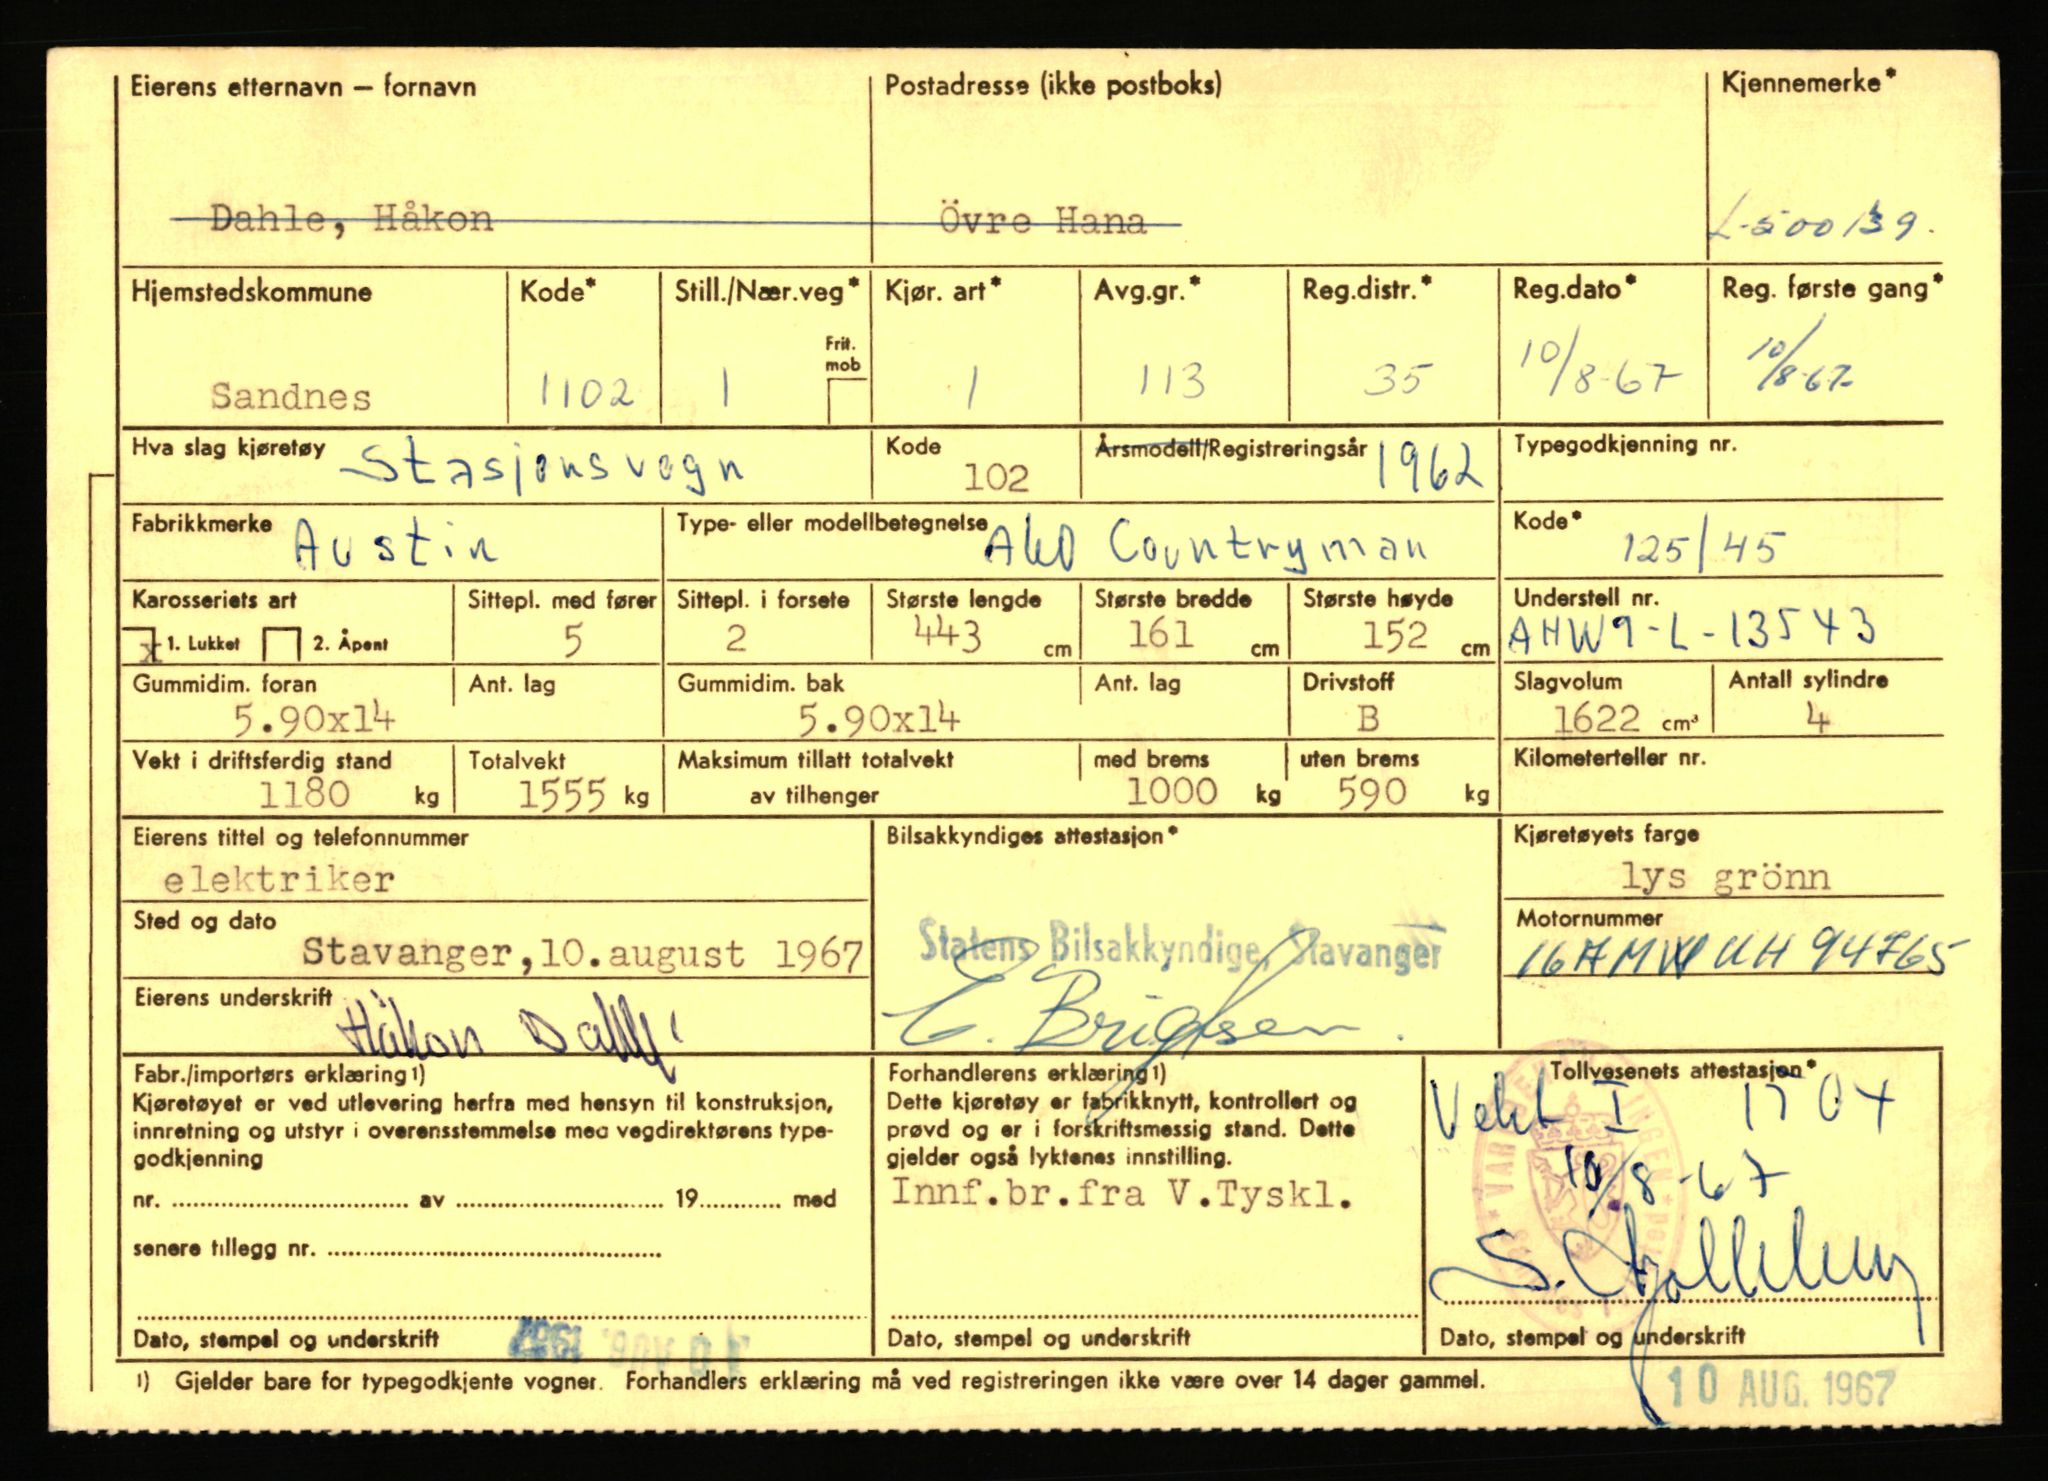 Eierens etternavn – fornavn Postadresse (ikke postboks) Kjennemerke*
Dahle, Håkon Övre Hana L-500139.
Hjemstedskommune Kode* Still./Nær.veg* Kjør. art* Avg.gr.* Reg.distr.* Reg.dato* Reg. første gang*
Frit. mob
Sandnes 1102 1 1 113 35 10/8-67 10/8-67-
Hva slag kjøretøy Stasjonsvogn Kode 102 Årsmodell/Registreringsår 1962 Typegodkjenning nr.
Fabrikkmerke Austin Type- eller modellbetegnelse A60 Countryman Kode* 125/45
Karosseriets art Sittepl. med fører Sittepl. i forsete Største lengde Største bredde Største høyde Understell nr.
x 1. Lukket 2. Åpent 5 2 443 cm 161 cm 152 cm AHW9-L-13543
Gummidim. foran Ant. lag Gummidim. bak Ant. lag Drivstoff Slagvolum Antall sylindre
5.90x14 5.90x14 B 1622 cm³ 4
Vekt i driftsferdig stand Totalvekt Maksimum tillatt totalvekt med brems uten brems Kilometerteller nr.
1180 kg 1555 kg av tilhenger 1000 kg 590 kg
Eierens tittel og telefonnummer Bilsakkyndiges attestasjon* Kjøretøyets farge
elektriker lys grönn
Sted og dato Statens Bilsakkyndige, Stavanger Motornummer
Stavanger,10.august 1967 16AMWUH94765
Eierens underskrift Håkon Dahle
Fabr./importørs erklæring1) Forhandlerens erklæring1) Tollvesenets attestasjon*
Kjøretøyet er ved utlevering herfra med hensyn til konstruksjon, Dette kjøretøy er fabrikknytt, kontrollert og Vekt I 1704
innretning og utstyr i overensstemmelse med vegdirektørens type- prøvd og er i forskriftsmessig stand. Dette
godkjenning gjelder også lyktenes innstilling. 10/8-67
nr. av 19 med Innf.br.fra V.Tyskl.
senere tillegg nr.
Dato, stempel og underskrift 10 AUG. 1967 Dato, stempel og underskrift Dato, stempel og underskrift
1) Gjelder bare for typegodkjente vogner. Forhandlers erklæring må ved registreringen ikke være over 14 dager gammel. 10 AUG. 1967